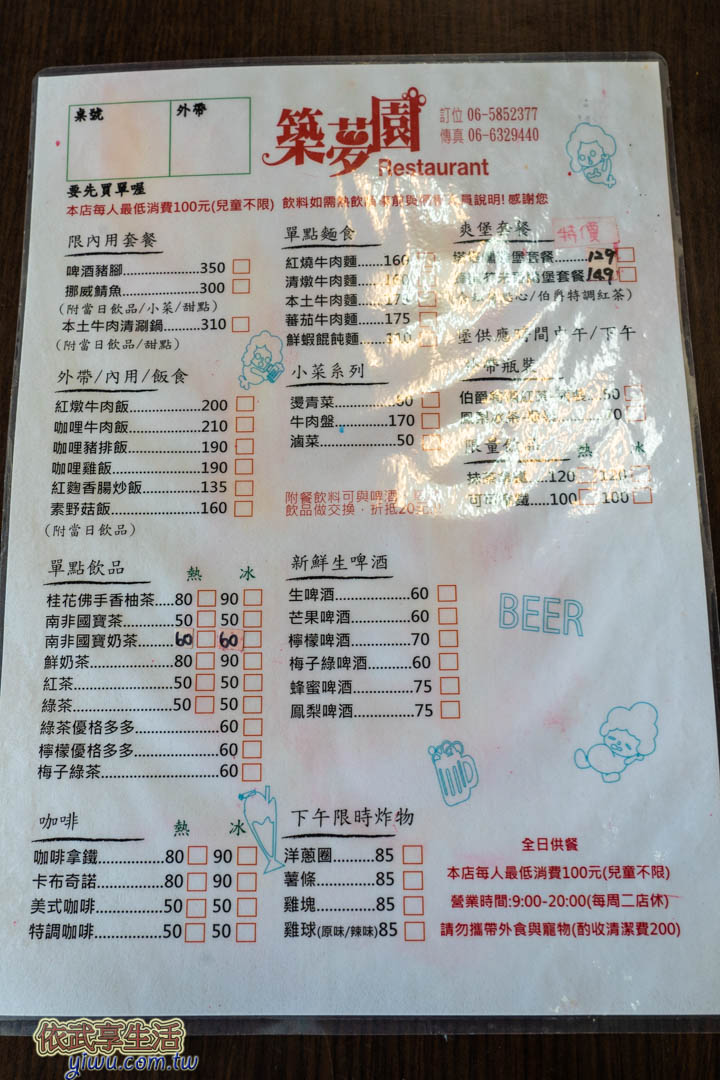 桌號 外帶
築夢園
Restaurant
訂位 06-5852377
傳真 06-6329440
要先買單喔
本店每人最低消費100元(兒童不限) 飲料如需熱飲 說明! 感謝您
限內用套餐
啤酒豬腳 350
挪威鯖魚 300
(附當日飲品/小菜/甜點)
本土牛肉清涮鍋 310
(附當日飲品/甜點)
外帶/內用/飯食
紅燉牛肉飯 200
咖哩牛肉飯 210
咖哩豬排飯 190
咖哩雞飯 190
紅麴香腸炒飯 135
素野菇飯 160
(附當日飲品)
單點麵食
紅燒牛肉麵 160
清燉牛肉麵
本土牛肉麵 175
蕃茄牛肉麵 175
鮮蝦餛飩麵
小菜系列
燙青菜
牛肉盤 170
滷菜 50
附餐飲料可與啤酒
飲品做交換，折抵20
爽堡套餐 特價
堡套餐 129
堡套餐 149
/伯爵特調紅茶)
堡供應時間中午/下午
外帶瓶裝
伯爵 50
70
限量飲品 熱 冰
120 120
100 100
單點飲品 熱 冰
桂花佛手香柚茶 80 90
南非國寶茶 50 50
南非國寶奶茶 60 60
鮮奶茶 80 90
紅茶 50 50
綠茶 50 50
綠茶優格多多 60
檸檬優格多多 60
梅子綠茶 60
新鮮生啤酒
生啤酒 60
芒果啤酒 60
檸檬啤酒 70
梅子綠啤酒 60
蜂蜜啤酒 75
鳳梨啤酒 75
BEER
咖啡 熱 冰
咖啡拿鐵 80 90
卡布奇諾 80 90
美式咖啡 50 50
特調咖啡 50 50
下午限時炸物
洋蔥圈 85
薯條 85
雞塊 85
雞球(原味/辣味) 85
全日供餐
本店每人最低消費100元(兒童不限)
營業時間:9:00-20:00(每周二店休)
請勿攜帶外食與寵物(酌收清潔費200)
依武享生活
yiwu.com.tw